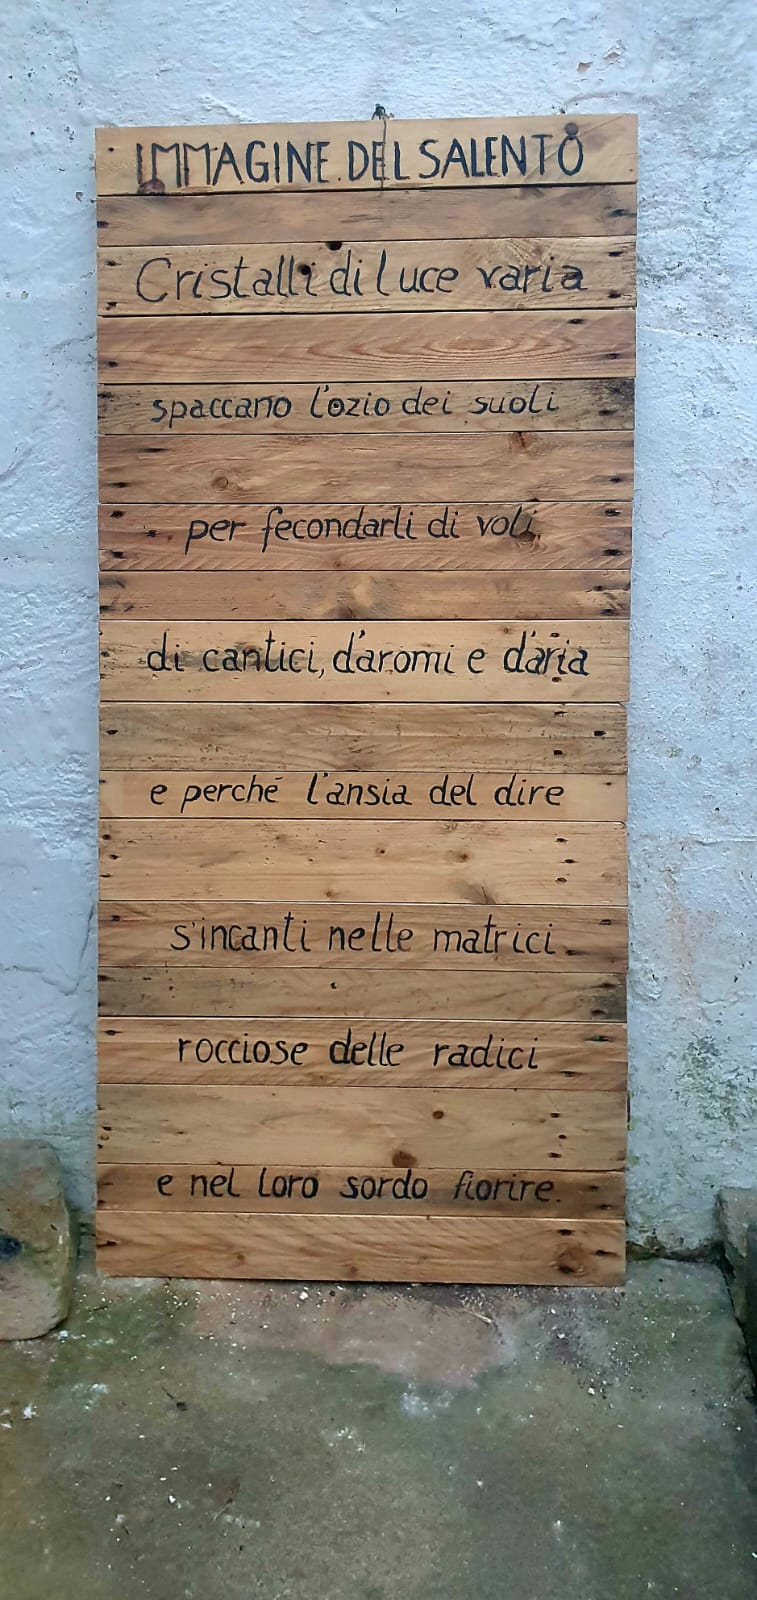 IMMAGINE DEL SALENTO
Cristalli di luce varia
spaccano l'ozio dei suoli
per fecondarli di voli,
di cantici, d'aromi e d'aria
e perché l'ansia del dire
s'incanti nelle matrici
rocciose delle radici
e nel loro sordo fiorire.